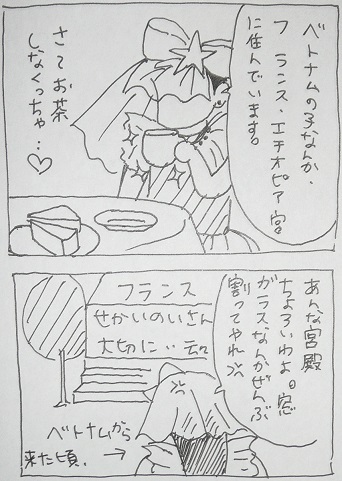 ベトナムの子なんか、
フランス・エチオピア宮
に住んでいます。
さてお茶
しなくっちゃ…♡
あんな宮殿
ちょろいわよ。窓
ガラスなんかぜんぶ
割ってやれ
フランス
せかいのいさん
大切に…云々
ベトナムから
来た頃。